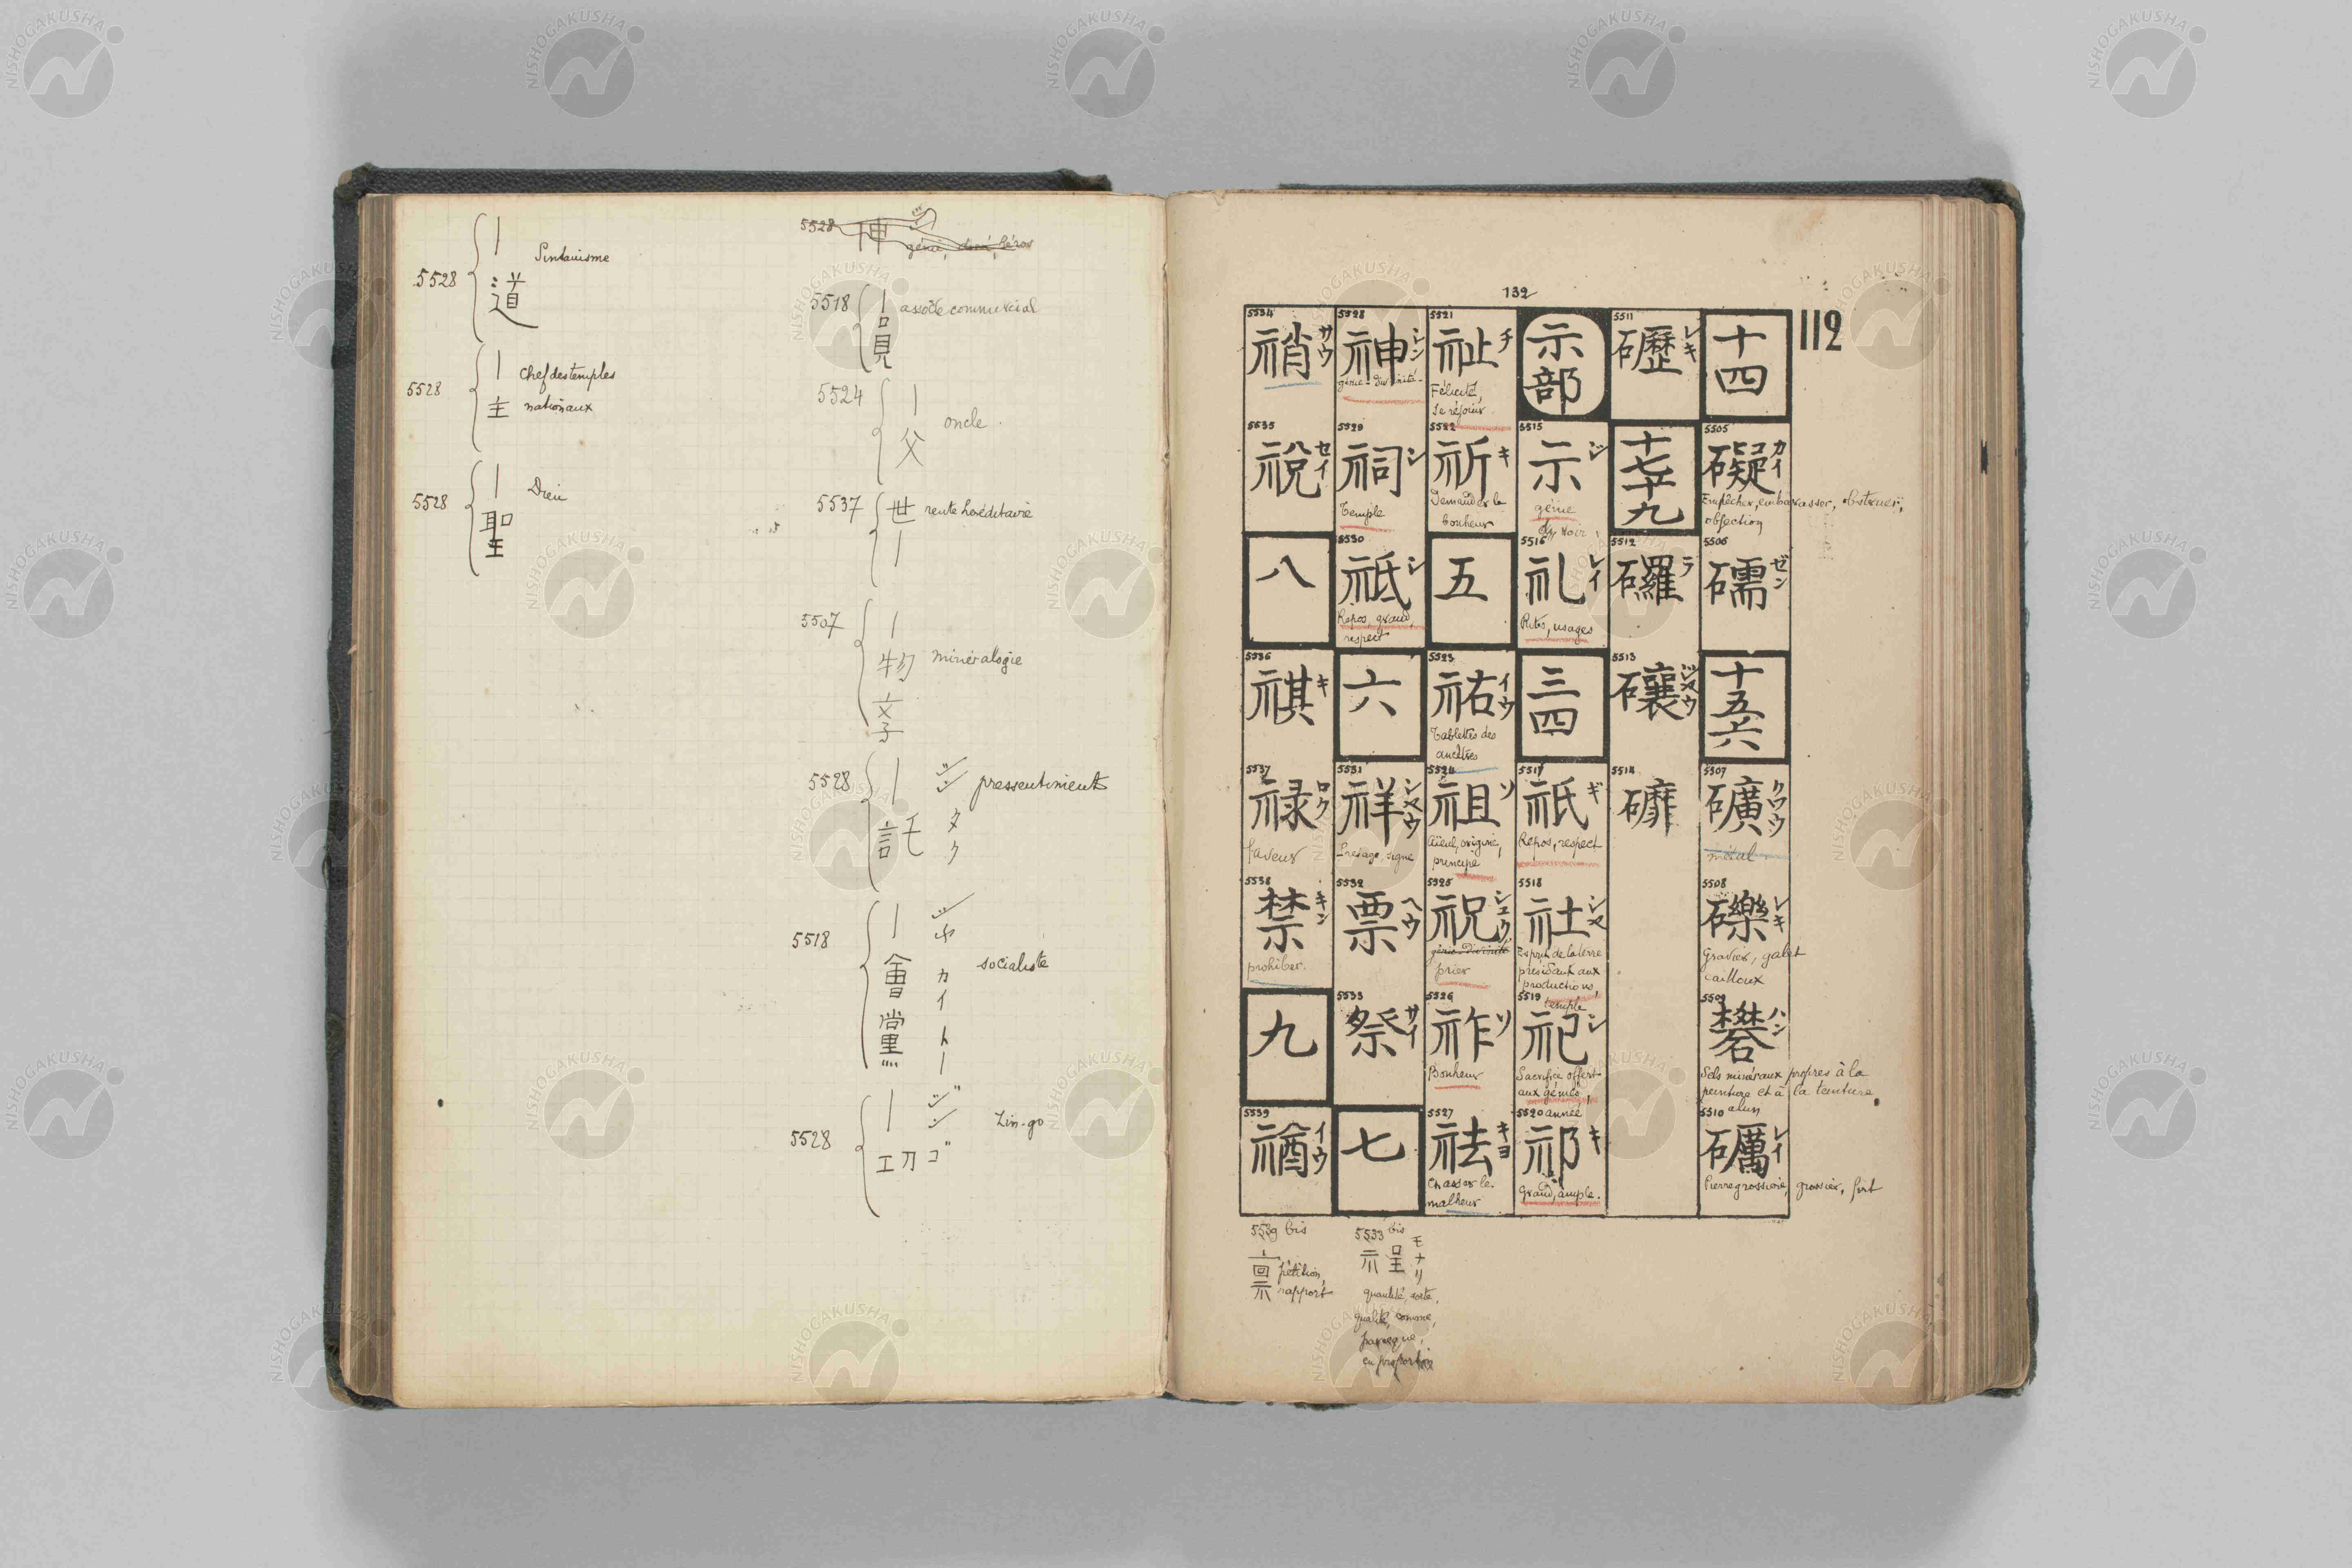 5528 { 丨 Sintauisme
道
5528 { 丨 chef des temples
主 nationaux
5528 { 丨 Dieu
聖
5528 神 génie,
5518 { 丨 associé commercial
員
5524 { 丨 oncle
父
5537 { 世 rente héréditaire
丨
5507 { 丨
物 minéralogie
学
5528 { 丨 シン pressentiments
託 タク
5518 { 丨 シャ
會 カイ socialiste
黨 トー
5528 { 丨 ジン Zin-go
功 ゴ
132
112
十四
5505 礙 カイ
Empêcher, embarrasser, obstruer,
objection
5506 礝 ゼン
十五六
5507 礦 クワウ
métal
5508 礫 レキ
Gravier, galet
cailloux
5509 礬 ハン
Sels minéraux propres à la
peinture et à la teinture
alun
5510 礪 レイ
Pierre grossière, grossier, fort
5511 礰 レキ
十七十九
5512 礳 ラ
5513 礳 ジヤウ
5514 礳
示部
5515 示 ジ
génie
voir
5516 礼 レイ
Rites, usages
三四
5517 祇 ギ
Repos, respect
5518 社 シヤ
Esprit de la terre
présidant aux
productions,
temple
5519 祀 シ
Sacrifice offert
aux génies,
année
5520 祁 キ
Grand, ample.
5521 祉 チ
Félicité,
Se réjouir
5522 祈 キ
Demander le
bonheur
五
5523 祐 イウ
Tablettes des
ancêtres
5524 祖 ソ
Aïeul, origine,
principe
5525 祝 シユウ
génie-divinité
prier
5526 祚 ソ
Bonheur
5527 祛 キヨ
Chasser le
malheur
5528 神 シン
génie-divinité-
5529 祠 シ
Temple
5530 祗 シ
Repos, grand,
respect
六
5531 祥 シヤウ
Présage, signe
5532 票 ヘウ
5533 祭 サイ
七
5534 祒 サウ
5535 祱 セイ
八
5536 祺 キ
5537 禄 ロク
faveur
5538 禁 キン
prohiber.
九
5539 禉 イウ
5539 bis
禀 pétition,
rapport
5533 bis
モナリ
quantité, sorte,
qualité, comme,
parceque,
en proportion